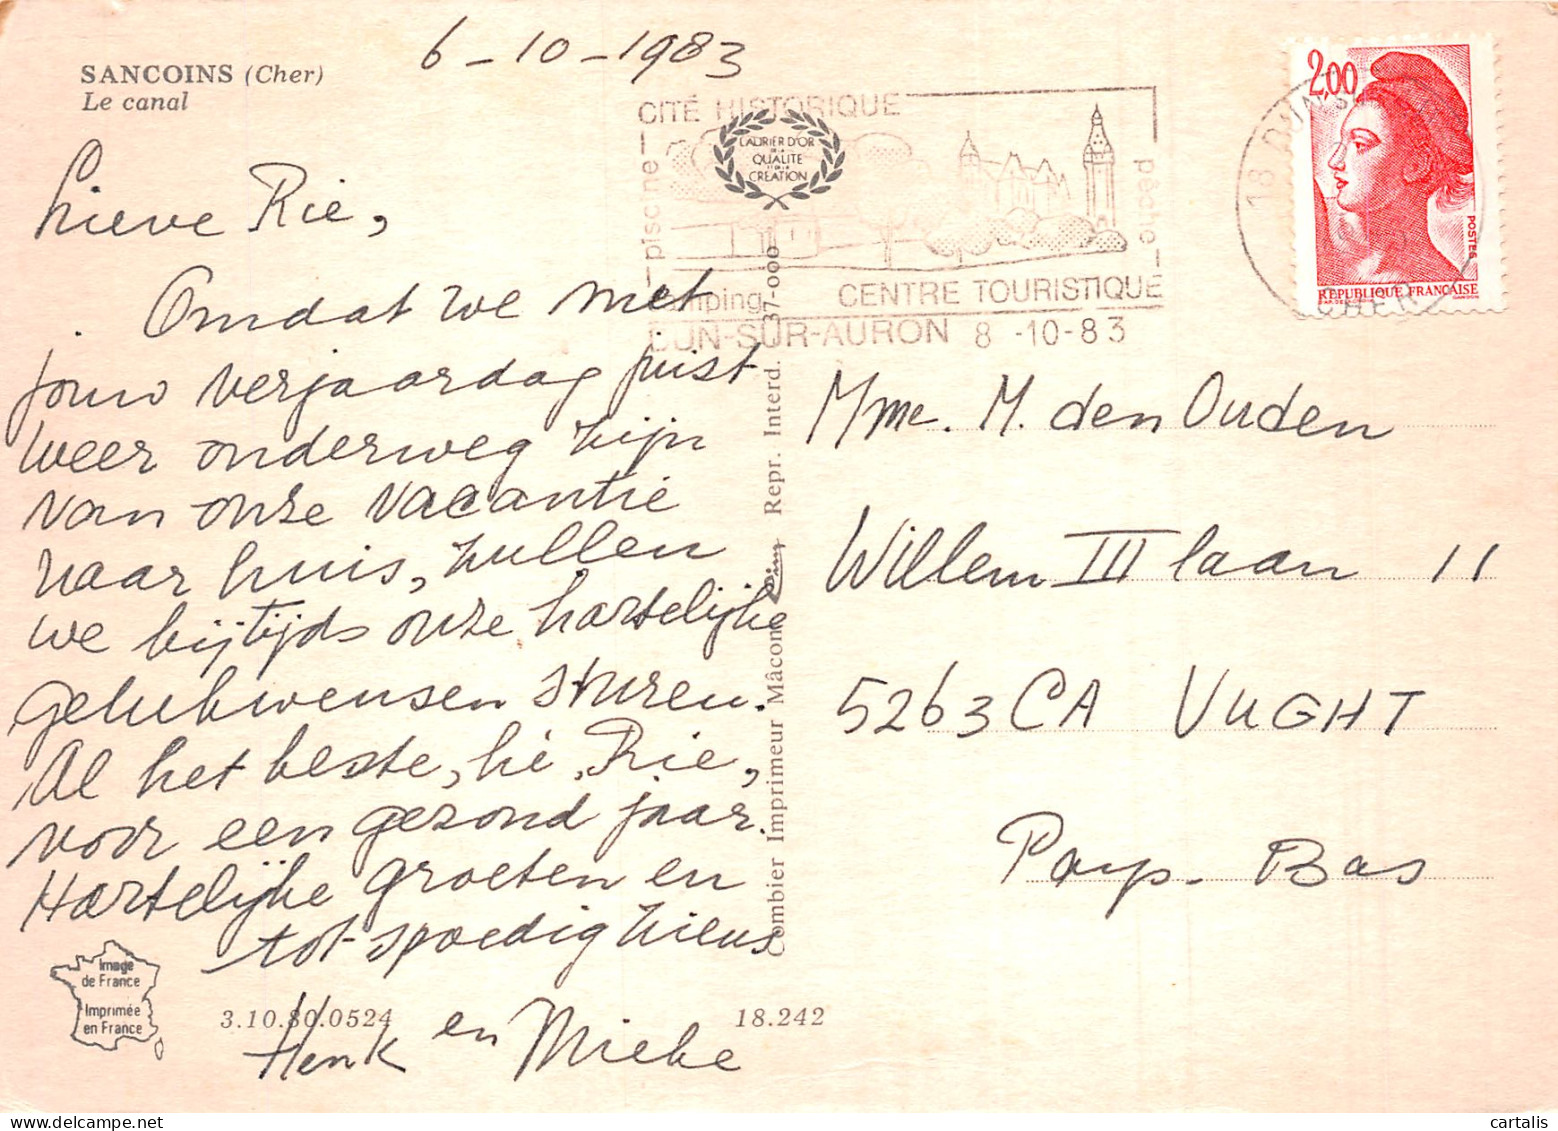 SANCOINS (Cher)
Le canal
6-10-1983
Lieve Rie,
Omdat we met
jouw verjaardag juist
weer onderweg zijn
van onze vacantie
naar huis, zullen
we bijtijds onze hartelijke
gelukwensen sturen.
Al het beste, hè, Rie,
voor een gezond jaar.
Hartelijke groeten en
tot spoedig ziens
Henk en Mieke
Image
de France
Imprimée
en France
3.10.80.0524
18.242
CITÉ HISTORIQUE
piscine
pêche
LAURIER D'OR
DE LA
QUALITE
ET DE LA
CREATION
CENTRE TOURISTIQUE
DUN-SUR-AURON 8 -10-83
Combier Imprimeur Mâcon
Repr. Interd. 37-000
2,00
POSTES
REPUBLIQUE FRANÇAISE
18 DUN S
CHER
Mme. M. den Ouden
Willem III laan 11
5263 CA VUGHT
Pays-Bas
cartalis